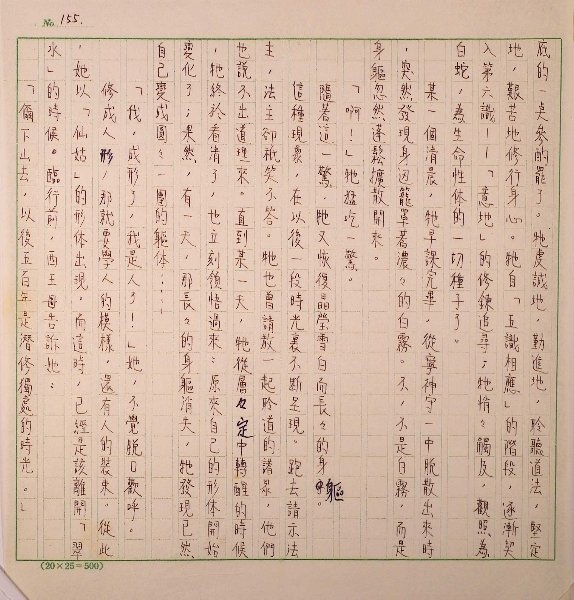 No 155.
底的一桌參的罷了。牠虔誠地，勤進地，聆聽道法，堅定
地，艱苦地修行身心。牠自「五識相應」的階段，逐漸契
入第六識——「意地」的修鍊追尋；牠悄々觸及，觀照為
白蛇，為生命性体的一切種子了。
某一個清晨，牠早課完畢，從寧神守一中脫散出來時
，突然發現身边籠罩著濃々的白霧。不，不是白霧，而是
身軀忽然蓬鬆擴散開來。
「啊！」牠猛吃一驚。
隨著這一驚，牠又恢復晶瑩雪白而長々的身軀。
這種現象，在以後一段時光裏不斷呈現。跑去請示法
主，法主卻秖笑不答。牠也曾請教一起聆道的諸衆，他們
也說不出道理來。直到某一天，牠從層々定中轉醒的時候
，牠終於看清了，也立刻領悟過來：原來自己的形体開始
變化了；果然，有一天，那長々的身軀消失，牠發現已然
自己變成圓々一團的軀体……
「我，成形了，我是人了！」她，不覺脫口歡呼。
修成人形，那就要學人的模樣，還有人的裝束，從此
，她以「仙姑」的形体出現，而這時，已經是該離開「翠
水」的時候。臨行前，西王母告訴她：
「爾下山去，以後五百年是潛修獨處的時光。」
(20×25=500)